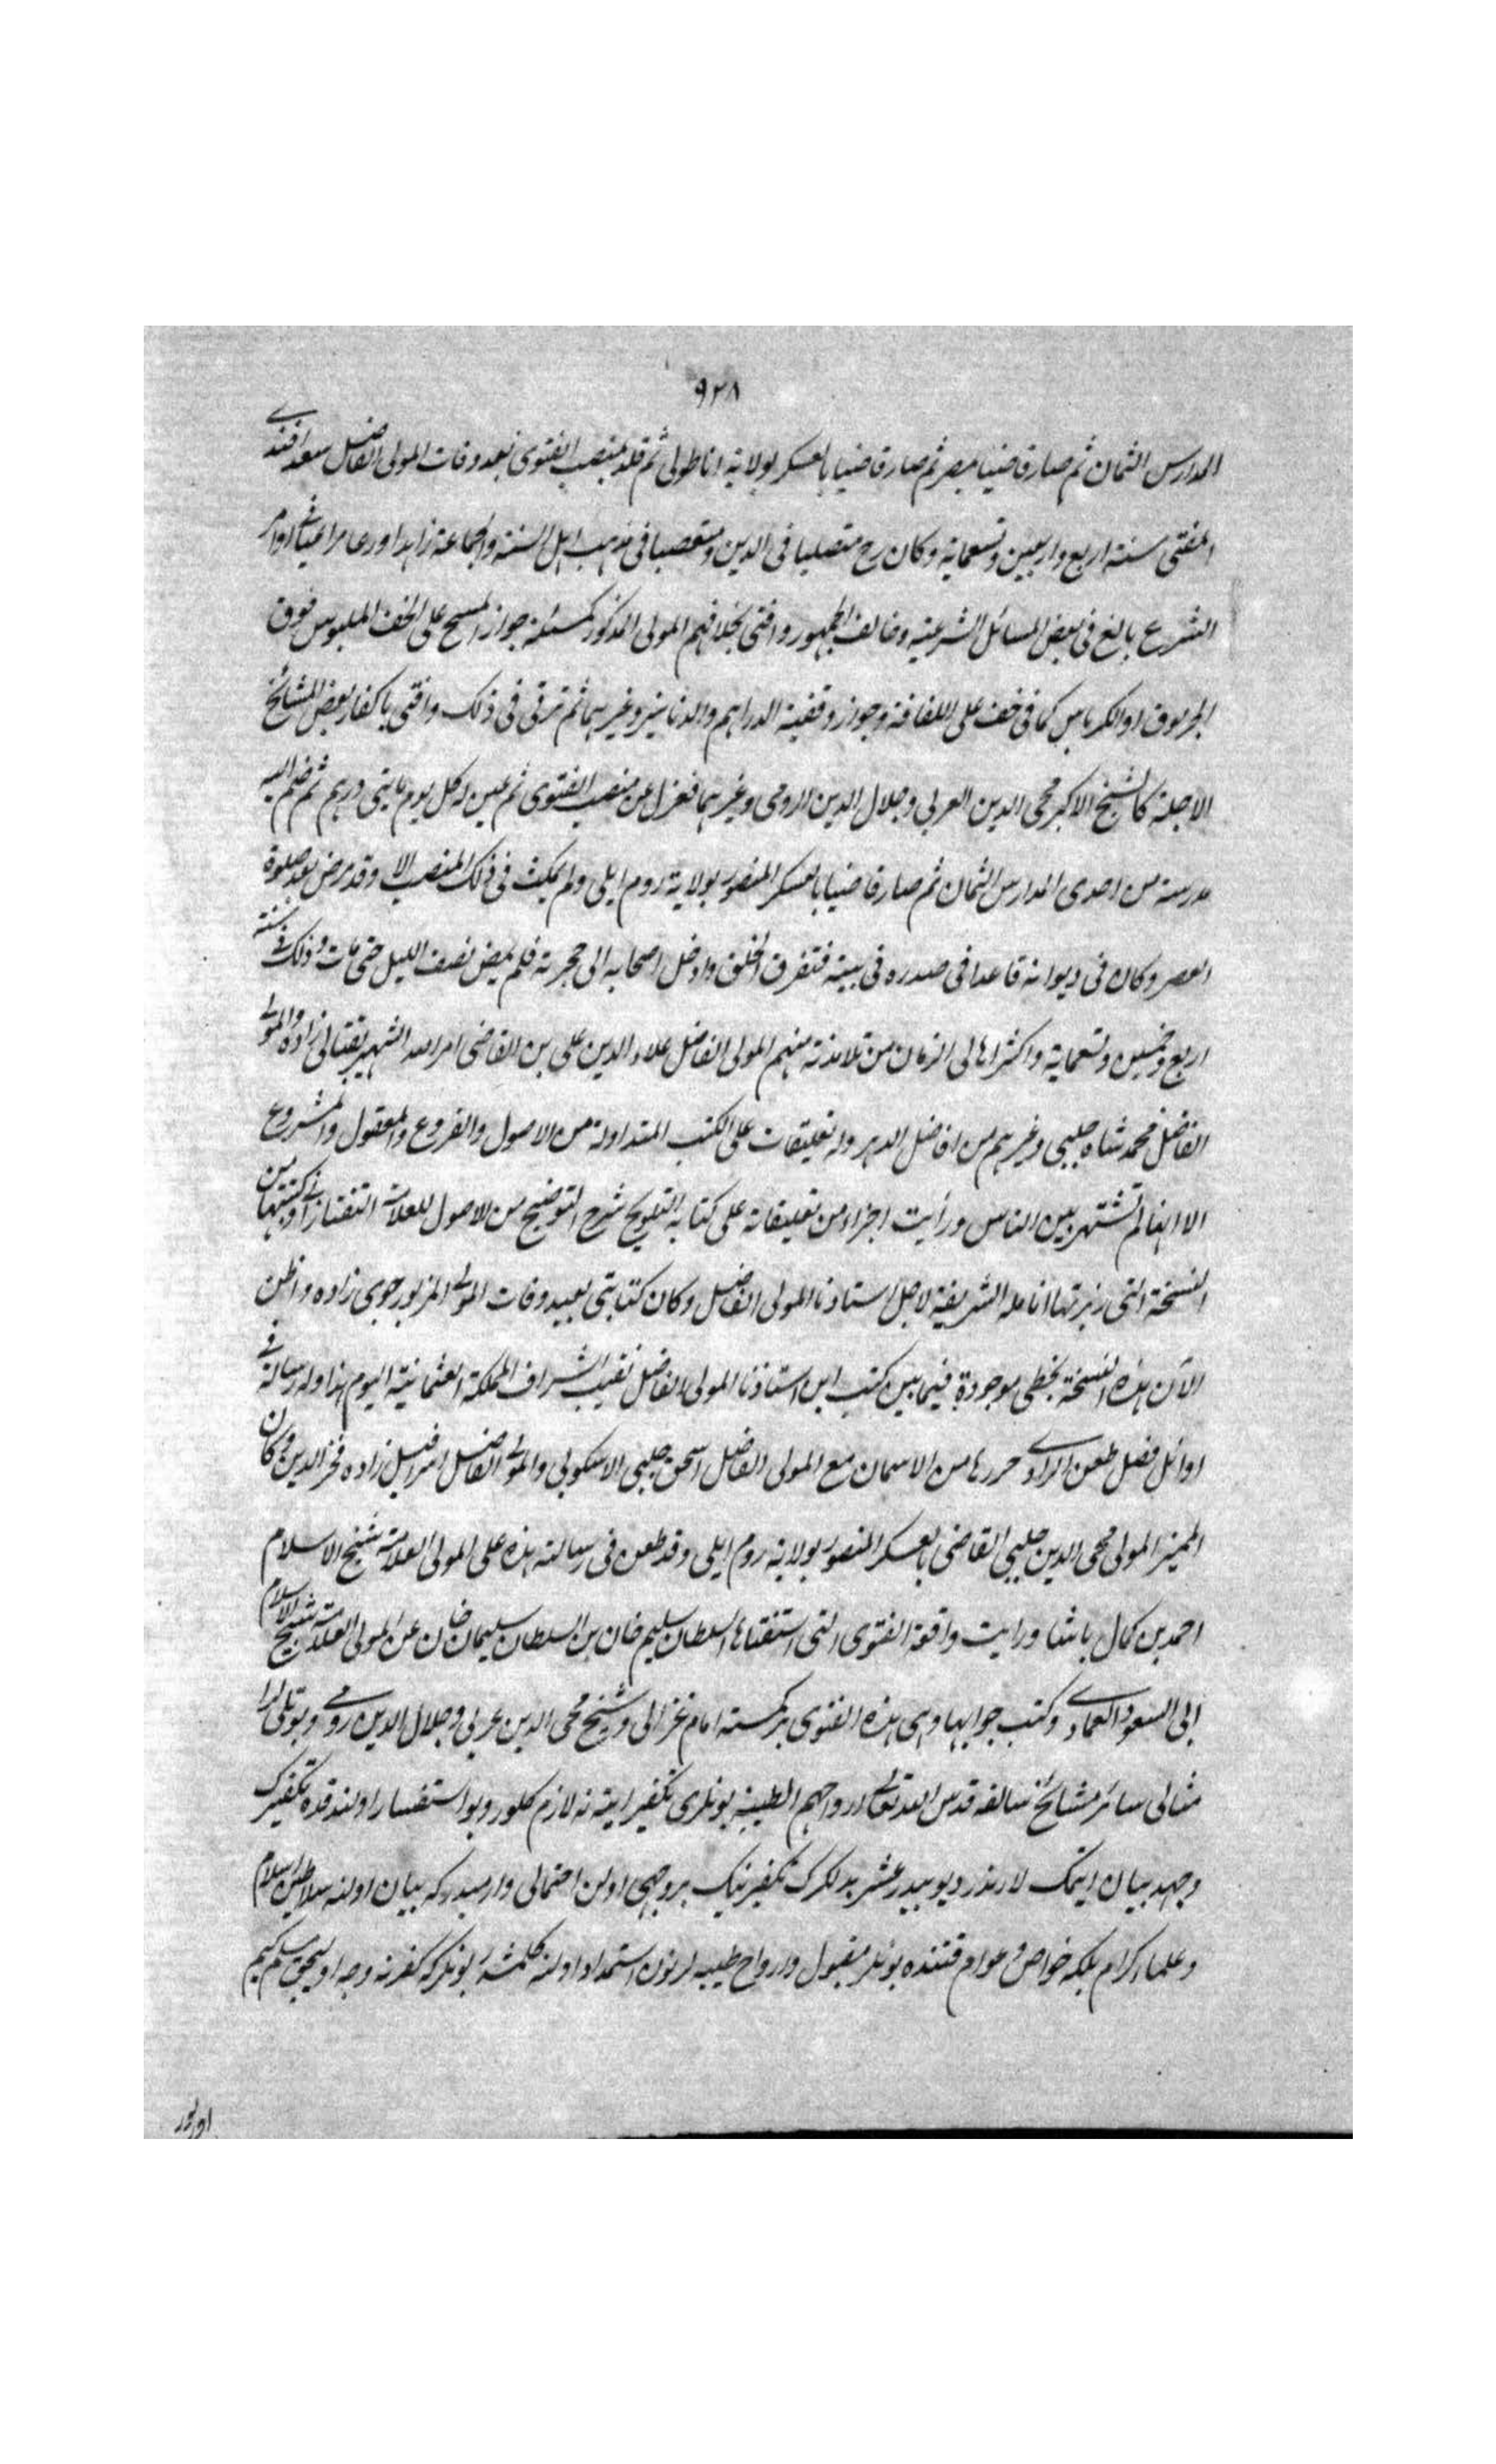 ٩٢٨
المدارس الثمان ثم صار قاضيا بمصر ثم صار قاضيا بالعسكر بولاية اناطولى ثم قلد بمنصب الفتوى بعد وفات المولى الفاضل سعد افندى
المفتى سنة اربع واربعين وتسعماية وكان رح متصلبا فى الدين ومتعصبا فى مذهب اهل السنة والجماعة زاهدا ورعا مراعيا اوامر
الشرع بالغ فى بعض المسائل الشرعية وخالف الجمهور وافتى بخلافهم المولى المذكور كمسئلة جواز المسح على الخف الملبوس فوق
الجرموق او الكرباس كما فى خف على اللفافة وجواز وقفية الدراهم والدنانير وغيرهما ثم ترقى فى ذلك وافتى باكفار بعض المشائخ
الاجلة كالشيخ الاكبر محى الدين العربى وجلال الدين الرومى وغيرهما فعزل عن منصب الفتوى ثم عين له كل يوم مايتى درهم ثم ضم اليه
مدرسة من احدى المدارس الثمان ثم صار قاضيا بالعسكر المنصور بولاية روم ايلى ولم يمكث فى ذلك المنصب الا وقد مرض بعد صلوة
العصر وكان فى ديوانه قاعدا فى صدره فى بيته فتفرق الخلق وادخل اصحابه الى حجرته فلم يمض نصف الليل حتى مات وذلك فى سنة
اربع وخمسين وتسعماية واكثر اهالى الزمان من تلامذته منهم المولى الفاضل علاء الدين على بن القاضى امر الله الشهير بقنالى زاده والمولى
الفاضل محمد شاه چلبى وغيرهم من افاضل الدهر وله تعليقات على الكتب المتداولة من الاصول والفروع والمعقول والمشروع
الا انها لم تشتهر بين الناس ورأيت اجزاء من تعليقاته على كتابه التلويح شرح التوضيح من الاصول للعلامة التفتازانى وكتبتها من
النسخة التى زبرتها انامله الشريفة لاجل استاذنا المولى الفاضل وكان كتابتى بعيد وفات المولى المزبور جوى زاده واظن
الآن هذه النسخة بخطى موجودة فيما بين كتب ابن استاذنا المولى الفاضل نقيب الشراف المملكة العثمانية اليوم هذا وله رسالة فى
اوائل فصل طعن الرازى حررها من الامتحان مع المولى الفاضل اسحق چلبى الاسكوبى والمولى الفاضل اسرافيل زاده فخر الدين وكان
المميز المولى محى الدين چلبى القاضى بالعسكر المنصور بولاية روم ايلى وقد طعن فى رسالته هذه على المولى العلامة شيخ الاسلام
احمد بن كمال پاشا ورايت واقعة الفتوى التى استفتاها السلطان سليم خان بن السلطان سليمان خان عن المولى العلامة شيخ الاسلام
ابى السعود العمادى وكتب جوابها وهى هذه الفتوى بر كمسنه امام غزالى وشيخ محى الدين عربى وجلال الدين رومى وبونلرك
مثالى سائر مشائخ سالفه قدس الله تعالى ارواحهم الطيبة بونلرى تكفير ايتسه نه لازم كلور وبو استفسار اولندقده تكفيرك
وجهن بيان ايتمك لازمدر ديو بيدر عشر بدلكرك تكفيرينك بر وجهى اولن احتمالى وارميدر كه بيان اولنه سلاطين اسلام
وعلماء كرام بلكه خواص وعوام قتنده بونلر مقبول وارواح طيبه لرندن استمداد اولنه كلمشدر بونلرك كفرنه وجه اوليجق
اولور